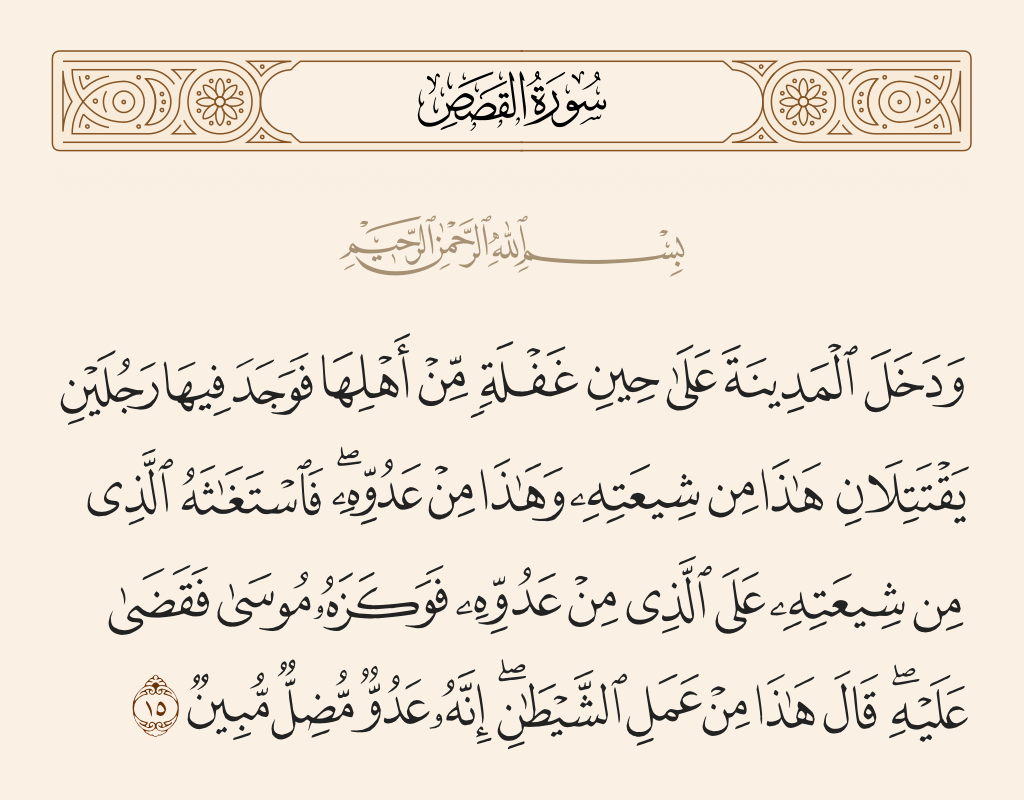 سُورَةُ القَصَصِ
بِسْمِ ٱللَّهِ ٱلرَّحْمَٰنِ ٱلرَّحِيمِ
وَدَخَلَ ٱلْمَدِينَةَ عَلَىٰ حِينِ غَفْلَةٍ مِّنْ أَهْلِهَا فَوَجَدَ فِيهَا رَجُلَيْنِ
يَقْتَتِلَانِ هَٰذَا مِن شِيعَتِهِۦ وَهَٰذَا مِنْ عَدُوِّهِۦ ۖ فَٱسْتَغَٰثَهُ ٱلَّذِى
مِن شِيعَتِهِۦ عَلَى ٱلَّذِى مِنْ عَدُوِّهِۦ فَوَكَزَهُۥ مُوسَىٰ فَقَضَىٰ
عَلَيْهِ ۖ قَالَ هَٰذَا مِنْ عَمَلِ ٱلشَّيْطَٰنِ ۖ إِنَّهُۥ عَدُوٌّ مُّضِلٌّ مُّبِينٌ ١٥